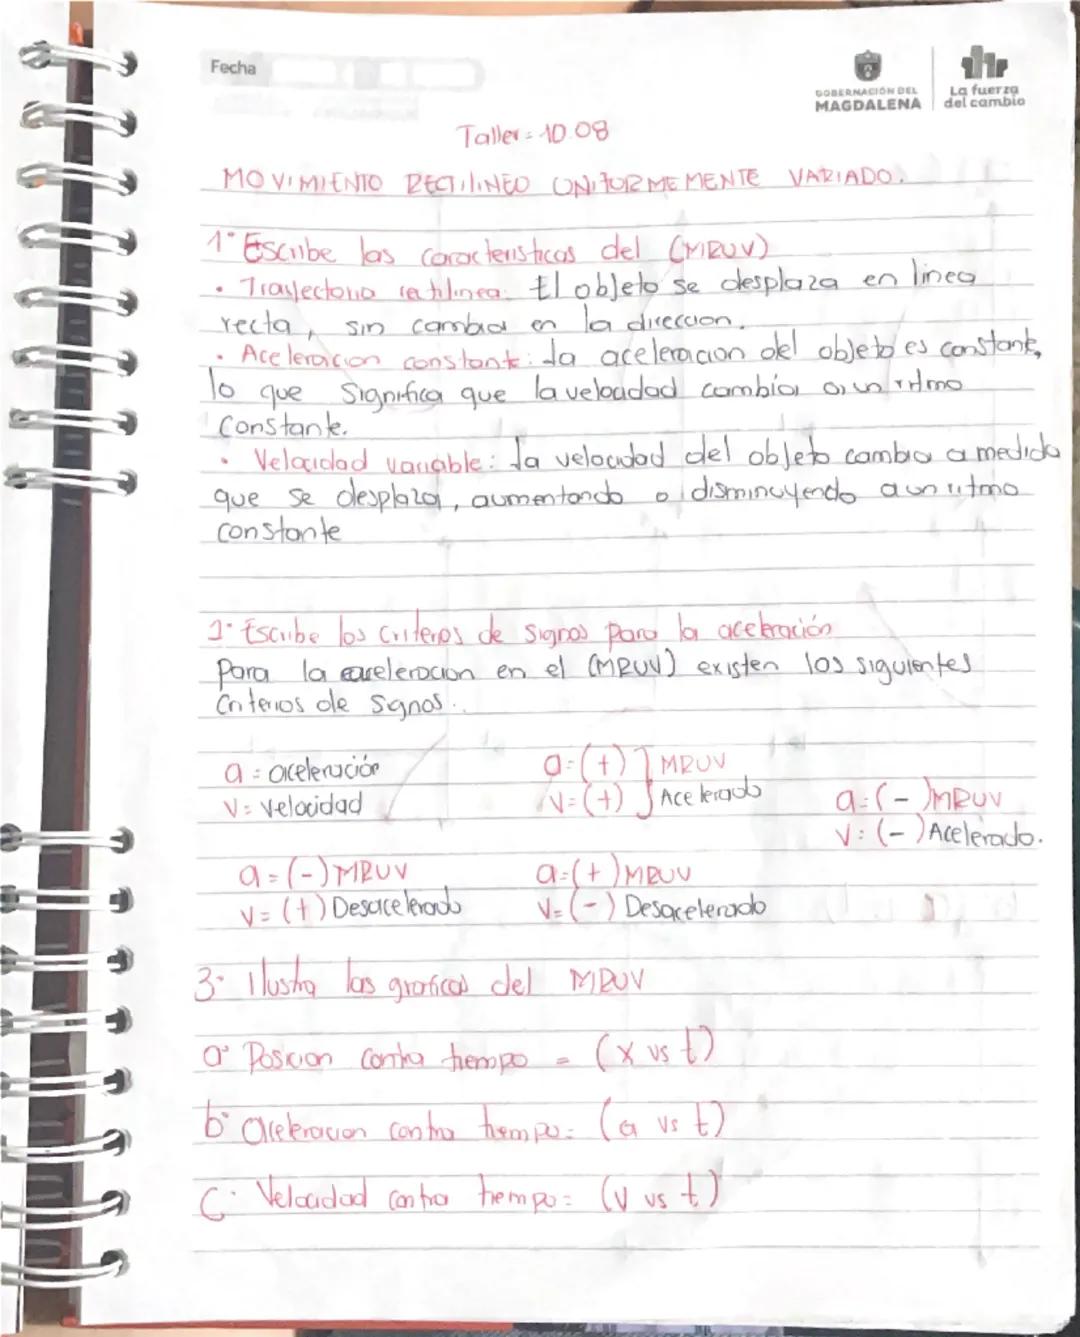 Fecha
GOBERNACIÓN DEL
MAGDALENA
La fuerza
del cambio
Taller = 10.08
MOVIMIENTO RECTILINEO UNIFORMEMENTE VARIADO.
1° Escribe las caracteristicas del (MRUV)
• Trayectoria rectilinea: El objeto se desplaza en linea
recta, sin cambiar en la direccion.
• Aceleracion constante: La aceleracion del objeto es constante,
lo que significa que la velocidad cambia a un ritmo
constante.
• Velocidad variable: La velocidad del objeto cambia a medida
que se desplaza, aumentando o disminuyendo a un ritmo
constante
2° Escribe los criterios de signos para la aceleración
Para la aceleracion en el (MRUV) existen los siguientes
Criterios de signos..
a = aceleración
V = Velocidad
a = (+) ] MRUV
V = (+) Acelerado
a = (-) MRUV
V = (-) Acelerado.
a = (-) MRUV
V = (+) Desacelerado
a = (+) MRUV
V = (-) Desacelerado
3° Ilustra las graficas del MRUV
a° Posicion contra tiempo = (x vs t)
b° aceleracion contra tiempo = (a vs t)
C° Velocidad contra tiempo = (V vs t)